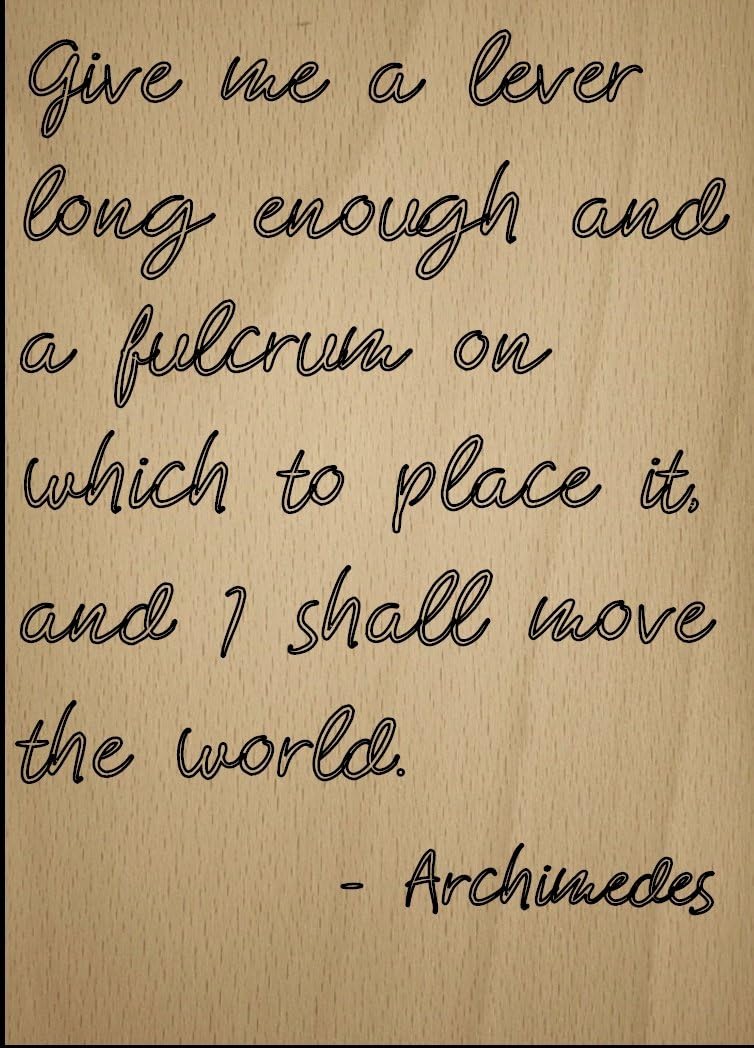 Give me a lever
long enough and
a fulcrum on
which to place it,
and I shall move
the world.
- Archimedes